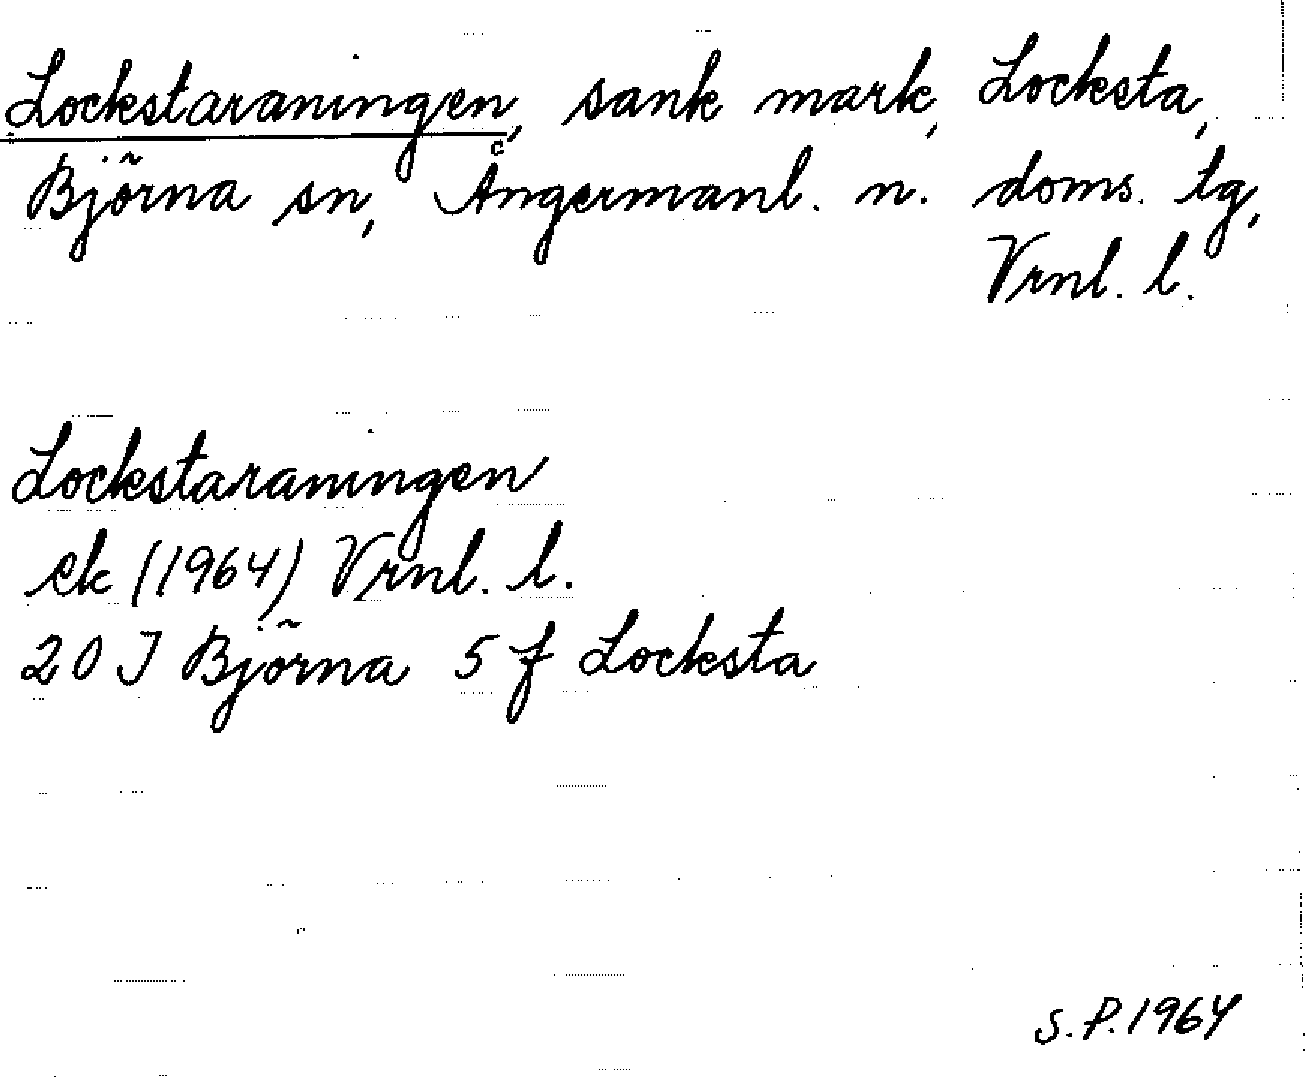 Lockstaraningen, sank mark, Locksta,
Björna sn, Ångermanl. n. doms. tg,
Vrnl. l.
Lockstaraningen
ek (1964) Vrnl. l.
20 J Björna 5 f Locksta
S.P. 1964